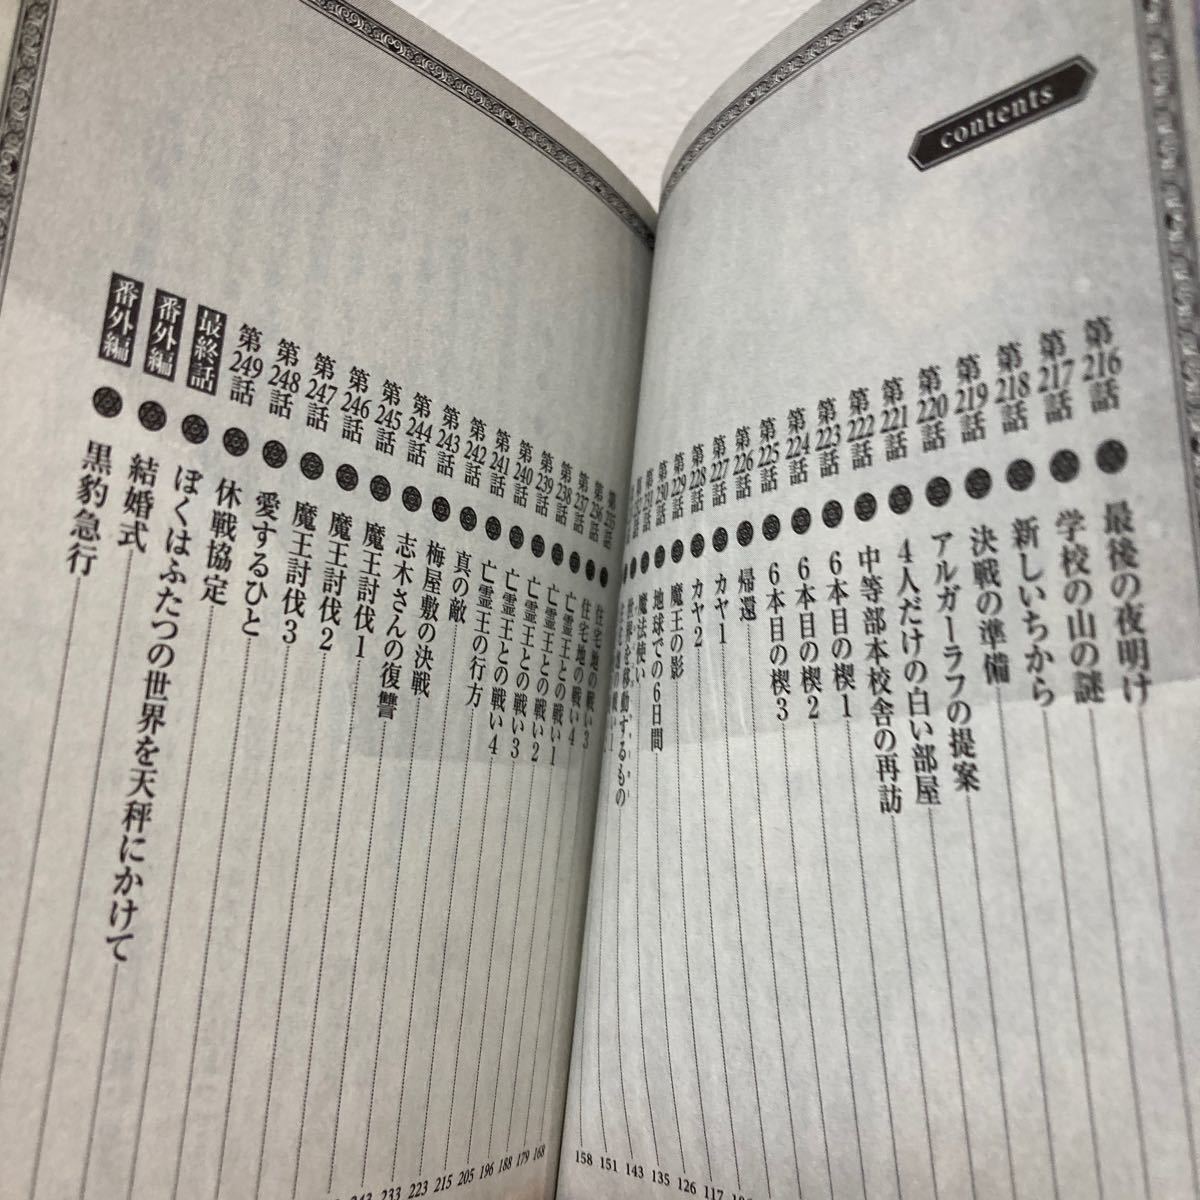 contents
第216話 最後の夜明け
第217話 学校の山の謎
第218話 新しいちから
第219話 決戦の準備
第220話 アルガーラフの提案
第221話 4人だけの白い部屋
第222話 中等部本校舎の再訪
第223話 6本目の楔1
第224話 6本目の楔2
第225話 6本目の楔3
第226話 帰還
第227話 カヤ1
第228話 カヤ2
第229話 魔王の影
第230話 地球での6日間
第231話 魔法使い
を移動するもの
158 151 143 135 126 117
第235話 住宅地の戦い3
第236話 住宅地の戦い4
第237話 亡霊王との戦い1
第238話 亡霊王との戦い2
第239話 亡霊王との戦い3
第240話 亡霊王との戦い4
第241話 亡霊王の行方
第242話 真の敵
第243話 梅屋敷の決戦
第244話 志木さんの復讐
第245話 魔王討伐1
第246話 魔王討伐2
第247話 魔王討伐3
第248話 愛するひと
第249話 休戦協定
最終話 ぼくはふたつの世界を天秤にかけて
番外編 結婚式
番外編 黒豹急行
243 233 223 215 205 196 188 179 168